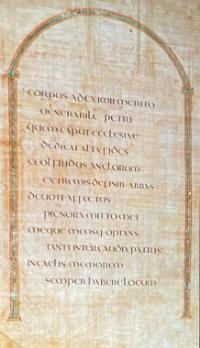 +CORPUS AD EXIMII MERITO
UENERABILE PETRI
QUEM CAPUT ECCLESIAE
DEDICAT ALTA FIDES
CEOLFRIDUS ANGLORUM
EXTREMIS DE FINIB· ABBAS
DEUOTI AFFECTUS
PIGNORA MITTO MEI
MEQUE MEOSQ· OPTANS
TANTI INTER GAUDIA PATRIS
IN CAELIS MEMOREM
SEMPER HABERE LOCUM